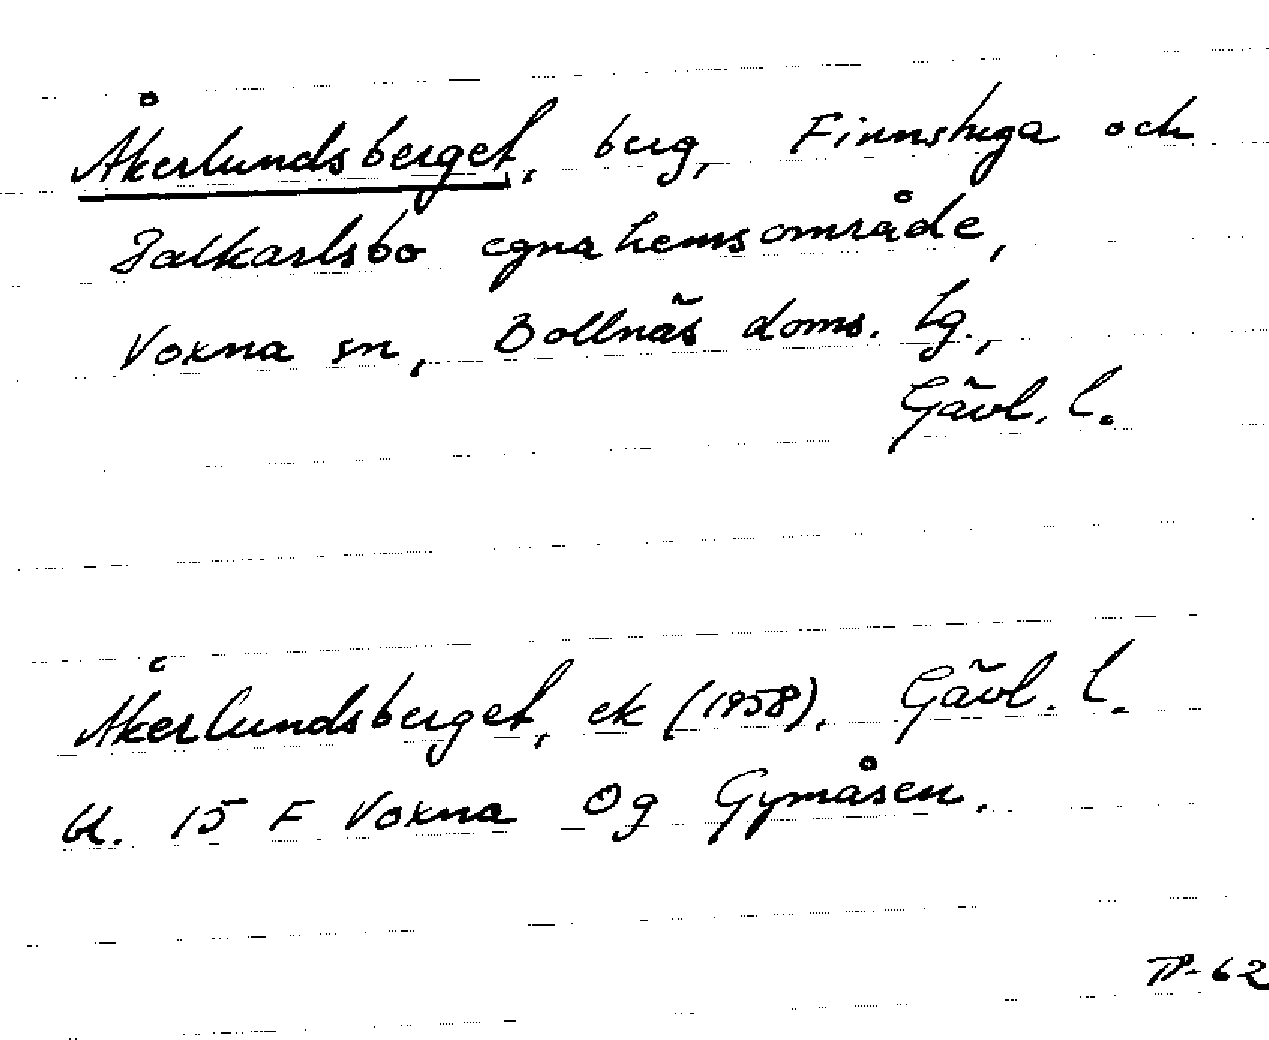 Åkerlundsberget, berg, Finnstuga och
Jalkarlsbo egnahemsområde,
Voxna sn, Bollnäs doms. lg.,
Gävl. l.
Åkerlundsberget, ek (1958). Gävl. l.
bl. 15 F Voxna 0g Gymåsen.
TP-62